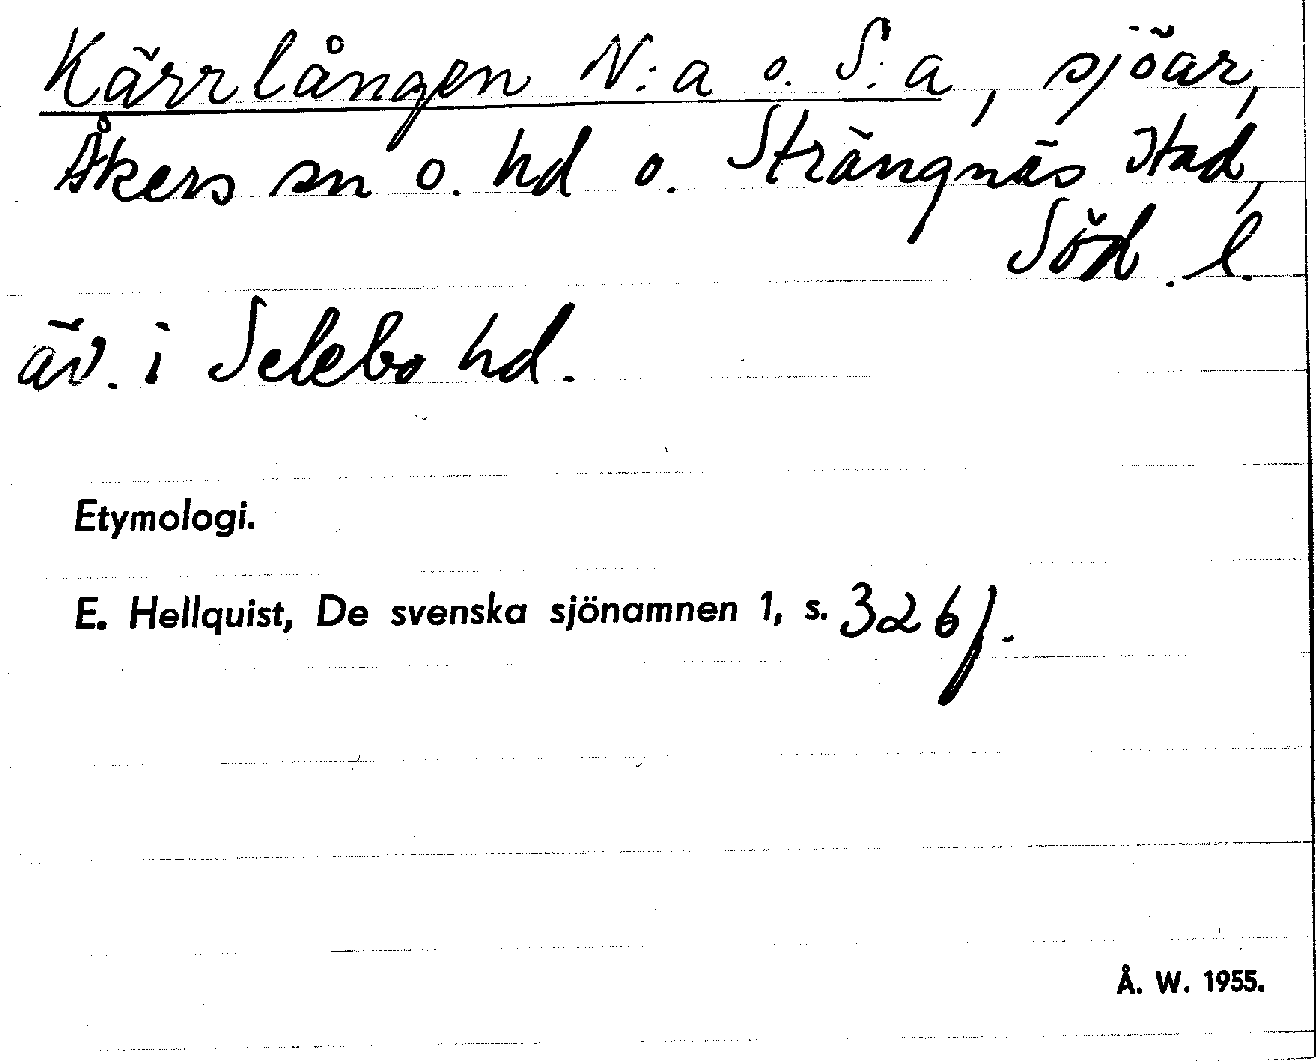 Kärrlången N:a o. S:a, sjöar,
Åkers sn o. hd o. Strängnäs stad,
Söd. l.
äv. i Selebo hd.
Etymologi.
E. Hellquist, De svenska sjönamnen 1, s. 326 f.
Å. W. 1955.